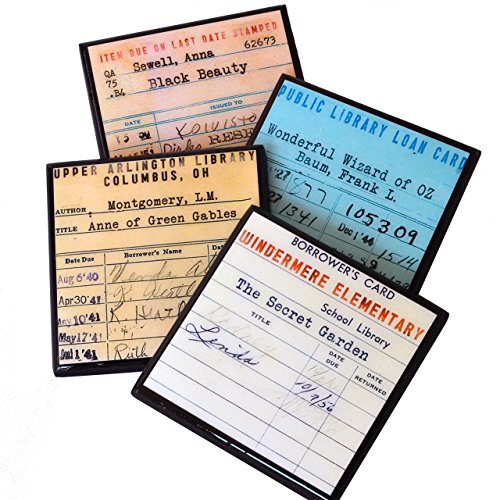 ITEM DUE ON LAST DATE STAMPED
QA
75
.B4
Sewell, Anna
62673
Black Beauty
DATE
ISSUED TO
PUBLIC LIBRARY LOAN CARD
Wonderful Wizard of OZ
Baum, Frank L.
105309
1341
Dec 1 '44
1514
UPPER ARLINGTON LIBRARY
COLUMBUS, OH
AUTHOR Montgomery, L.M.
TITLE Anne of Green Gables
Date Due Borrower's Name
Aug 6 '40
Apr 30 '41
10 '41
May 17 '41
1 '41 Ruth
BORROWER'S CARD
WINDERMERE ELEMENTARY
School Library
The Secret Garden
TITLE
DATE DUE
DATE RETURNED
Linda 10/9/56